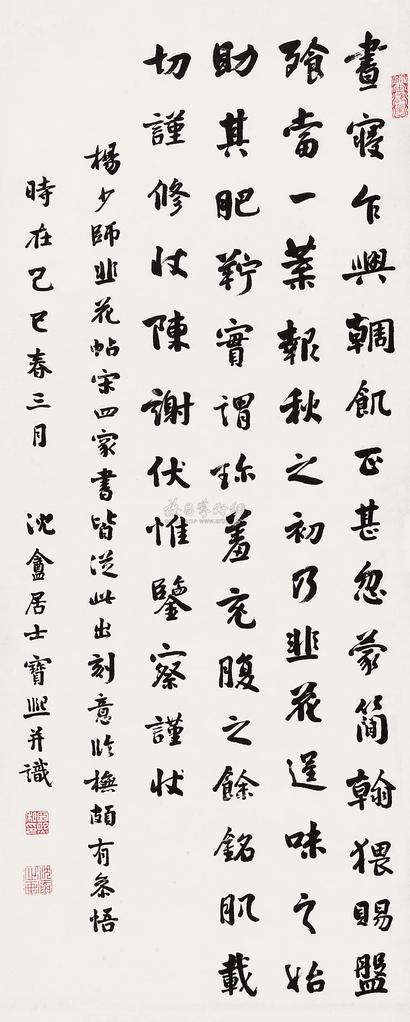 晝寢乍興輖飢正甚忽蒙簡翰猥賜盤
飱當一葉報秋之初乃韭花逞味之始
助其肥羜實謂珍羞充腹之餘銘肌載
切謹修狀陳謝伏惟鑒察謹狀
楊少師韭花帖宋四家書皆從此出刻意臨橅頗有參悟
時在己巳春三月 沈盦居士寶熙并識